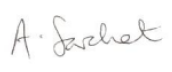 A. Sarchet